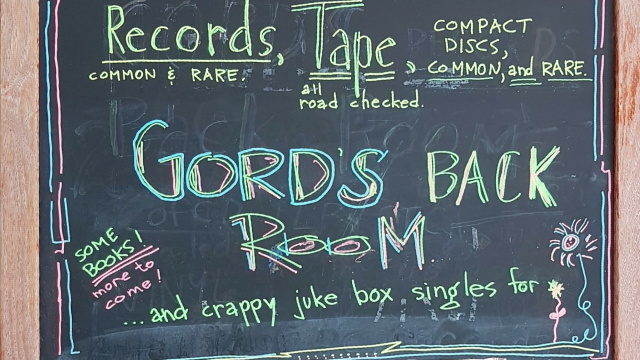 Records, Tape
COMMON & RARE.
all
road checked.
COMPACT
DISCS,
COMMON, and RARE.
GORD'S BACK
ROOM
SOME
BOOKS!
more to
come!
...and crappy juke box singles for